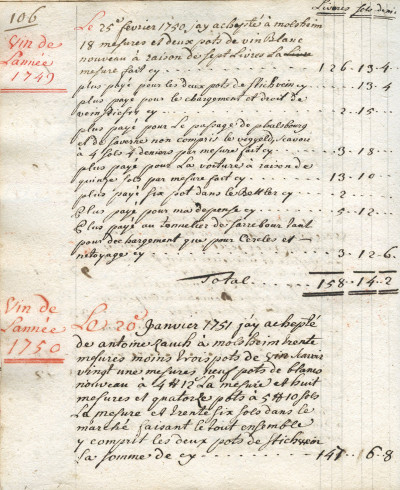 106
Livres sols den.
Vin de
L'année
1749
Le 25e fevrier 1750 jay achepté à molsheim
18 mesures et deux pots de vin Blanc
nouveau à raison de sept Livres La
mesure fait cy 126..13..4
plus payé pour les deux pots de Stichvein cy 13..4
plus payé pour le chargement et droit de
cy 2..15..
plus payé pour Le passage de phalsbourg
et de saverne non compris le scavoir
à 4 sols 4 deniers par mesure fait cy 3..18..
plus payé pour La voiture à raison de
quinze sols par mesure fait cy 13..10..
plus payé six pots dans le Bettler cy 2
Plus payé pour ma depense cy 5..12..
Plus payé au Tonnelier de sarrebour tant
pour dechargement que pour Cercles et
netoyage cy 3..12..6
Total 158..14..2
Vin de
L'année
1750
Le 20e Janvier 1751 jay achepté
de antoine à molsheim trente
mesures moins trois pots de vin scavoir
vingt une mesures neuf pots de blanc
nouveau à 4# 12 La mesure et huit
mesures et quatorze pots à 5# 10 sols
La mesure et trente six sols dans le
marché faisant le tout ensemble
y comprit les deux pots de Stichvein
La somme de cy 147..6..8